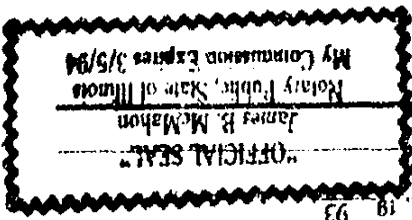 19 93
"OFFICIAL SEAL"
James B. McMahon
Notary Public, State of Illinois
My Commission Expires 3/5/94